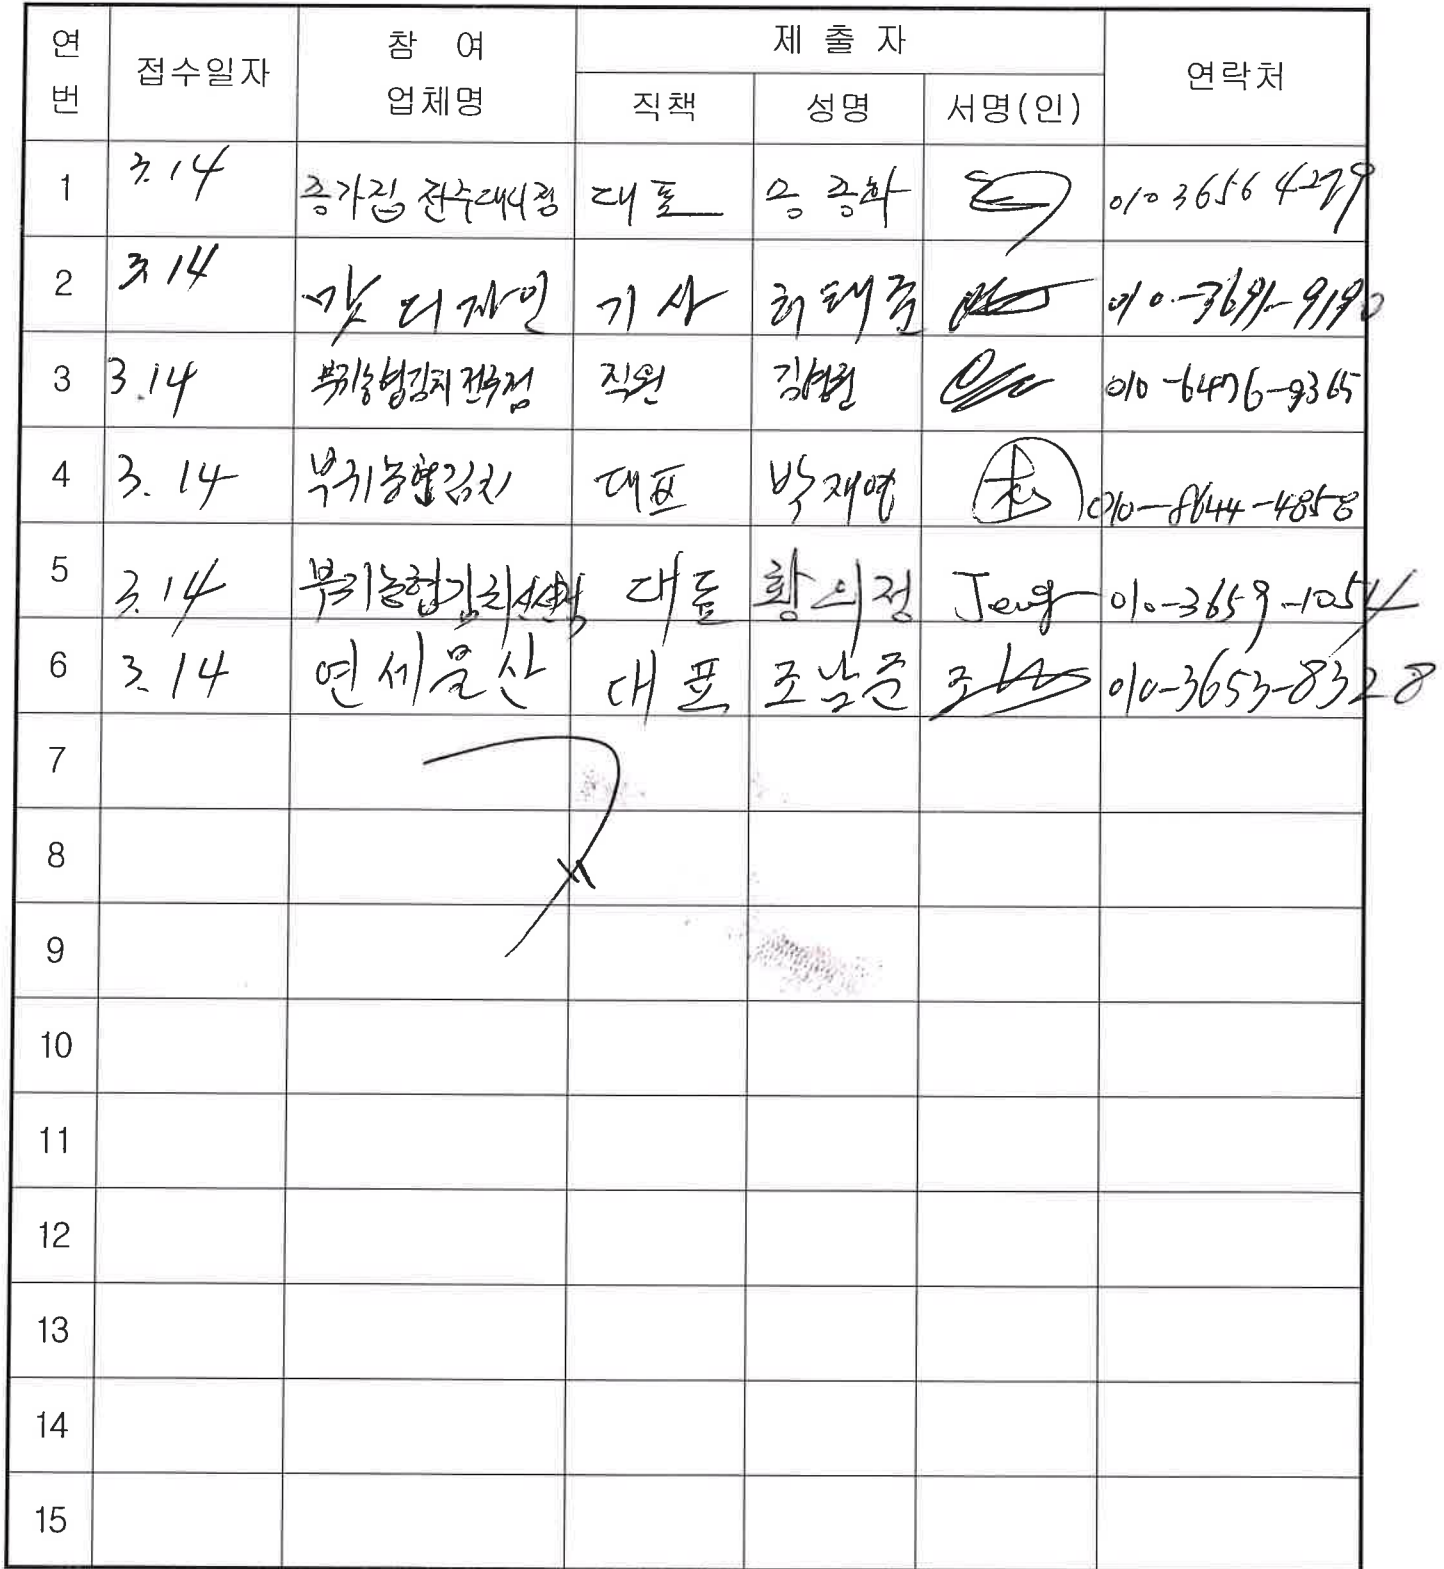 연번 접수일자 참 여 업체명 제 출 자 연락처
직책 성명 서명(인)
1 3.14 종가집 전주대리점 대표 010 3656 4279
2 3.14 디자인 기사 허태준 010-3691-9190
3 3.14 부귀농협김치 전주점 직원 김병원 010-6476-9365
4 3. 14 부귀농협김치 대표 박재영 010-8644-4858
5 3.14 부귀농협김치 대표 황의정 Jeug 010-3659-1054
6 3.14 연세물산 대표 조남준 조 010-3653-8328
7
8
9
10
11
12
13
14
15